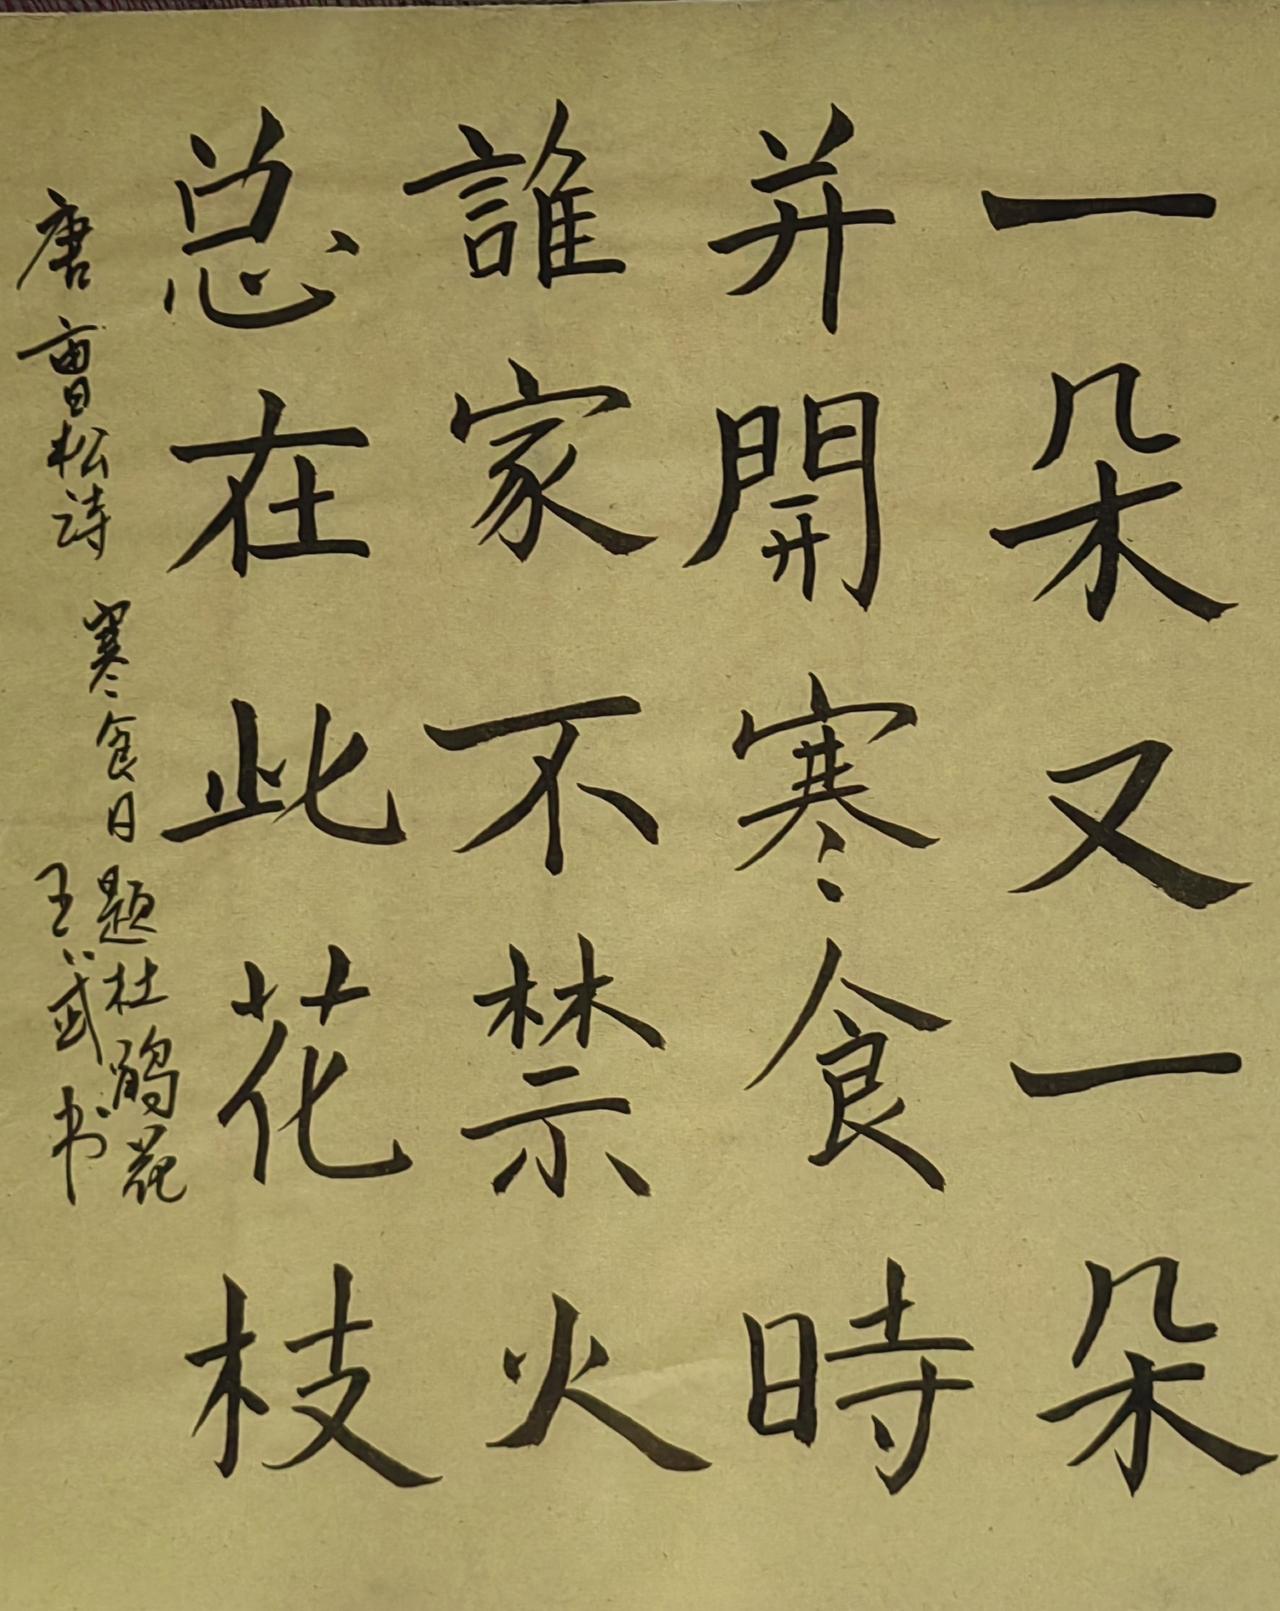 一朵又一朵
并開寒食時
誰家不禁火
总在此花枝
唐曹松詩
寒食日題杜鹃花
王武书